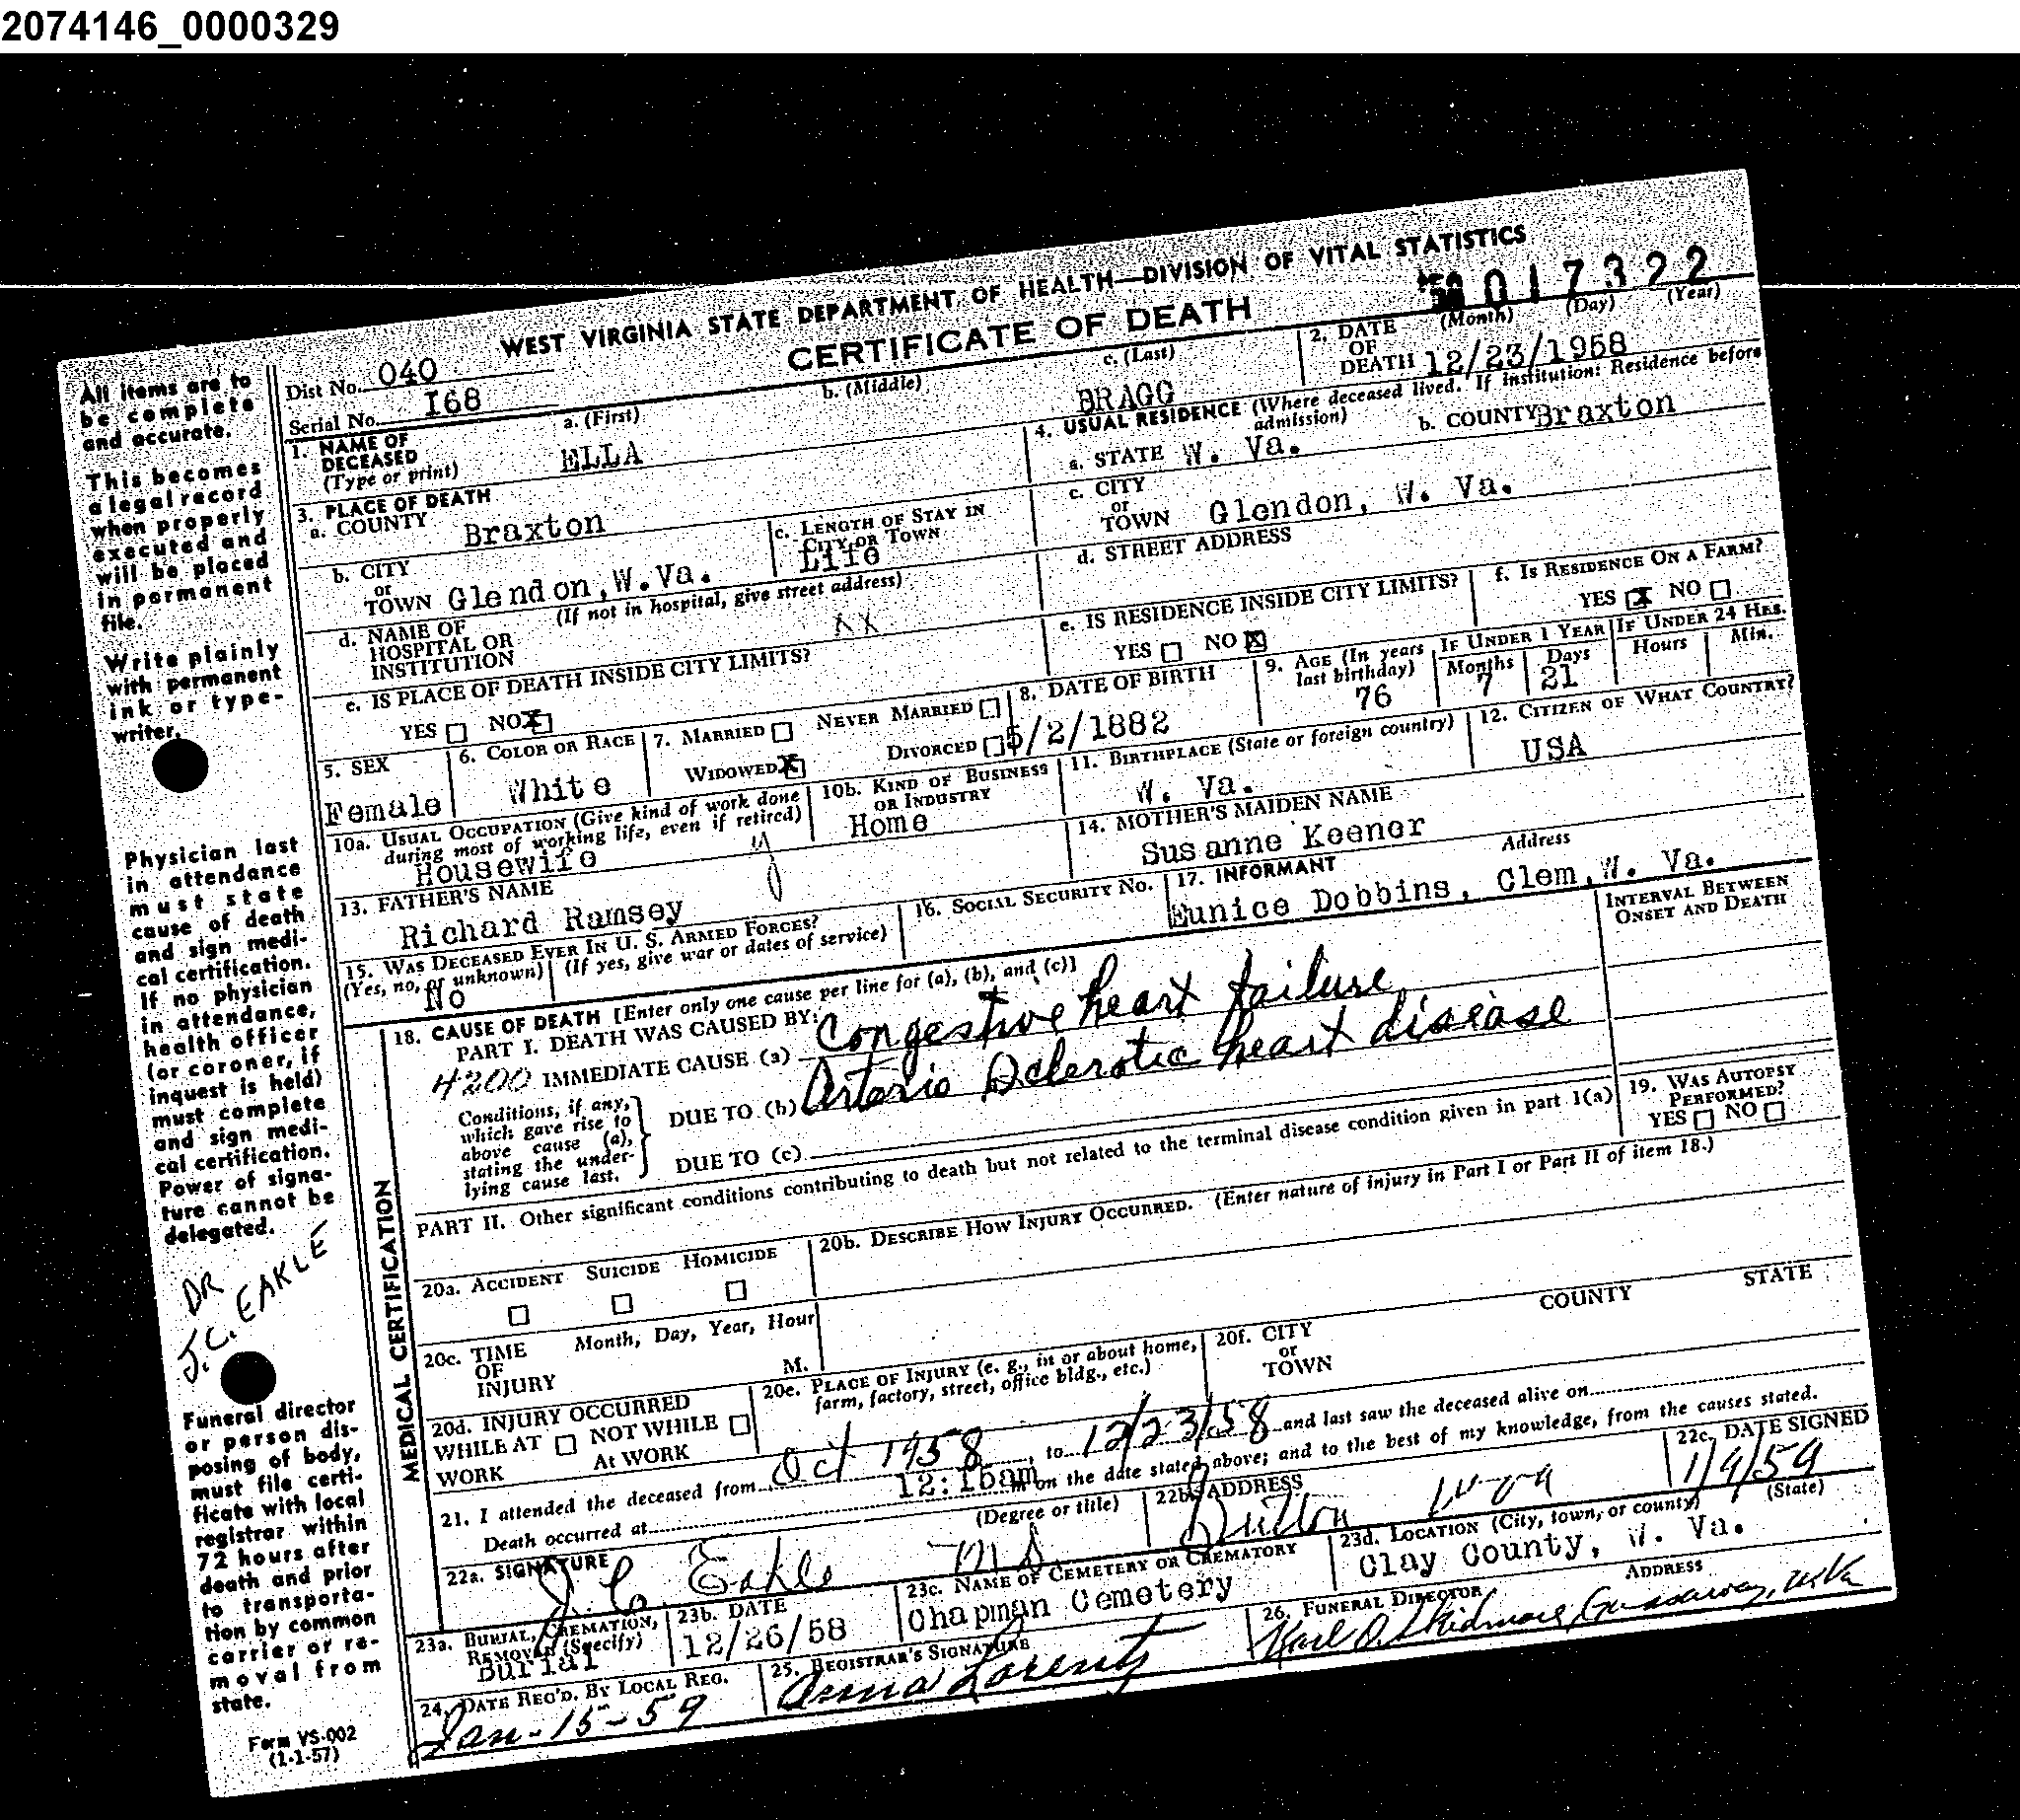 2074146_0000329
WEST VIRGINIA STATE DEPARTMENT OF HEALTH—DIVISION OF VITAL STATISTICS
CERTIFICATE OF DEATH
017322
Dist No. 040
Serial No. 168
1. NAME OF DECEASED (Type or print) a. (First) ELLA b. (Middle) c. (Last) BRAGG
2. DATE OF DEATH (Month) (Day) (Year) 12/23/1958
3. PLACE OF DEATH
a. COUNTY Braxton
b. CITY or TOWN Glendon,W.Va.
c. LENGTH OF STAY IN CITY OR TOWN Life
d. NAME OF HOSPITAL OR INSTITUTION (If not in hospital, give street address) XX
e. IS PLACE OF DEATH INSIDE CITY LIMITS?
YES NO X
4. USUAL RESIDENCE (Where deceased lived. If institution: Residence before admission)
a. STATE W. Va. b. COUNTY Braxton
c. CITY or TOWN Glendon, W. Va.
d. STREET ADDRESS
e. IS RESIDENCE INSIDE CITY LIMITS?
YES NO X
f. IS RESIDENCE ON A FARM?
YES X NO
5. SEX Female
6. COLOR OR RACE White
7. MARRIED NEVER MARRIED
WIDOWED X DIVORCED
8. DATE OF BIRTH 5/2/1882
9. AGE (In years last birthday) 76
IF UNDER 1 YEAR Months 7 Days 21
IF UNDER 24 HRS. Hours Min.
10a. USUAL OCCUPATION (Give kind of work done during most of working life, even if retired) Housewife
10b. KIND OF BUSINESS OR INDUSTRY Home
11. BIRTHPLACE (State or foreign country) W. Va.
12. CITIZEN OF WHAT COUNTRY? USA
13. FATHER'S NAME Richard Ramsey
14. MOTHER'S MAIDEN NAME Susanne Keener
15. WAS DECEASED EVER IN U. S. ARMED FORCES?
(Yes, no, or unknown) (If yes, give war or dates of service)
No
16. SOCIAL SECURITY No.
17. INFORMANT Address
Eunice Dobbins, Clem,W. Va.
MEDICAL CERTIFICATION
18. CAUSE OF DEATH [Enter only one cause per line for (a), (b), and (c)]
INTERVAL BETWEEN ONSET AND DEATH
PART I. DEATH WAS CAUSED BY:
4200 IMMEDIATE CAUSE (a) Congestive heart failure
Conditions, if any, which gave rise to above cause (a), stating the underlying cause last.
DUE TO (b) Arterio Sclerotic heart disease
DUE TO (c)
PART II. Other significant conditions contributing to death but not related to the terminal disease condition given in part I(a)
19. WAS AUTOPSY PERFORMED?
YES NO
20a. ACCIDENT SUICIDE HOMICIDE
20b. DESCRIBE HOW INJURY OCCURRED. (Enter nature of injury in Part I or Part II of item 18.)
20c. TIME OF INJURY Month, Day, Year, Hour M.
20d. INJURY OCCURRED
WHILE AT WORK NOT WHILE AT WORK
20e. PLACE OF INJURY (e. g., in or about home, farm, factory, street, office bldg., etc.)
20f. CITY or TOWN COUNTY STATE
21. I attended the deceased from Oct 1958, to 12/23/58 and last saw the deceased alive on
Death occurred at 12:16am m on the date stated above; and to the best of my knowledge, from the causes stated.
22a. SIGNATURE (Degree or title) J. C. Eakle MD
22b. ADDRESS Sutton W Va
22c. DATE SIGNED 1/9/59
23a. BURIAL, CREMATION, REMOVAL (Specify) Burial
23b. DATE 12/26/58
23c. NAME OF CEMETERY OR CREMATORY Chapman Cemetery
23d. LOCATION (City, town, or county) (State) Clay County, W. Va.
24. DATE REC'D. BY LOCAL REG. Jan-15-59
25. REGISTRAR'S SIGNATURE Anna Lorentz
26. FUNERAL DIRECTOR ADDRESS
Karl O. Skidmore, Gassaway, W.Va
All items are to
be complete
and accurate.
This becomes
a legal record
when properly
executed and
will be placed
in permanent
file.
Write plainly
with permanent
ink or type-
writer.
Physician last
in attendance
must state
cause of death
and sign medi-
cal certification.
If no physician
in attendance,
health officer
(or coroner, if
inquest is held)
must complete
and sign medi-
cal certification.
Power of signa-
ture cannot be
delegated.
DR
J.C. EAKLE
Funeral director
or person dis-
posing of body,
must file certi-
ficate with local
registrar within
72 hours after
death and prior
to transporta-
tion by common
carrier or re-
moval from
state.
Form VS-002
(1-1-57)